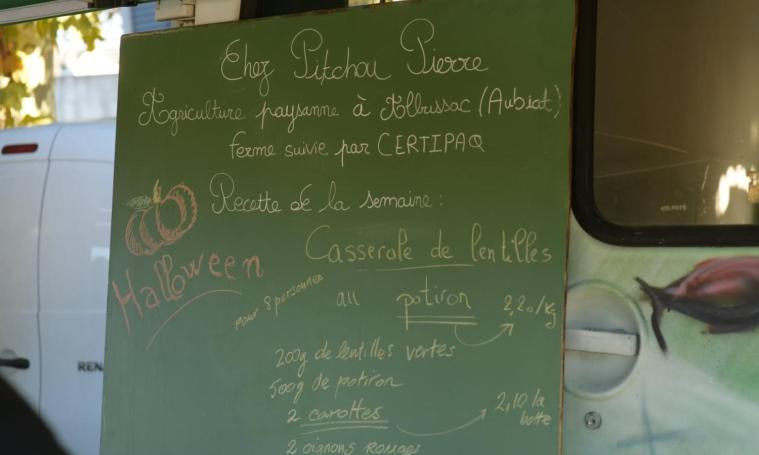 Chez Pitchou Pierre
Agriculture paysanne à Albussac (Aubiat)
ferme suivie par CERTIPAQ
Recette de la semaine :
Halloween
Casserole de lentilles
pour 8 personnes
au potiron
2,20/kg
200g de lentilles vertes
500g de potiron
2 carottes
2,10 la
botte
2 oignons rouges
REN